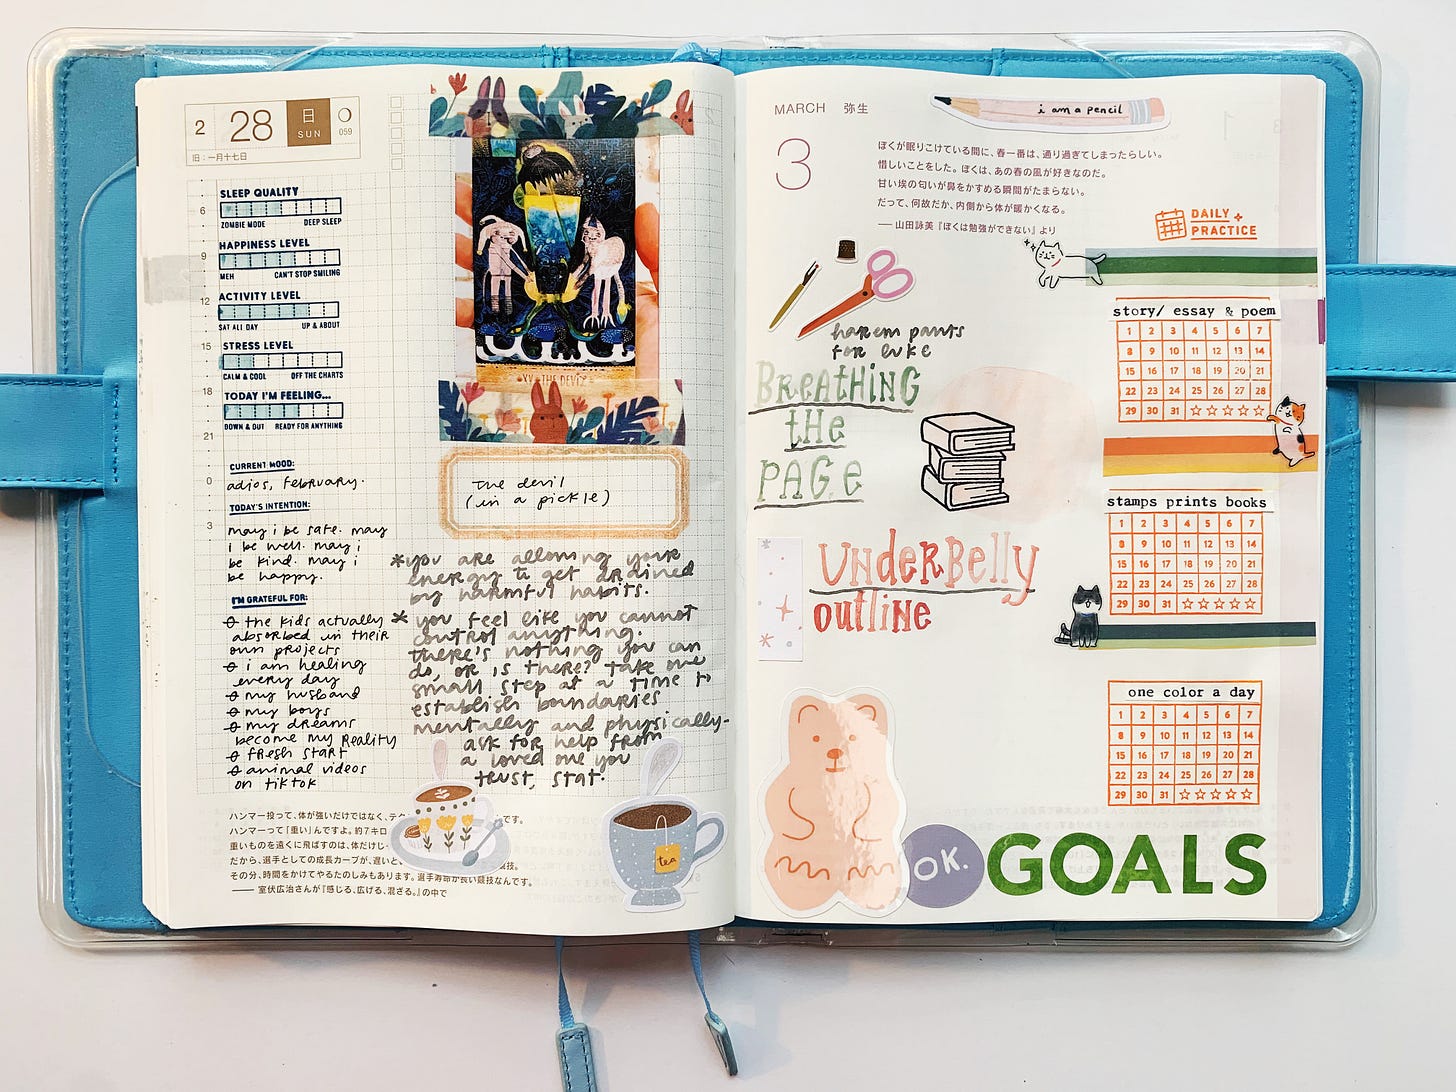 2 28 日 SUN 059
旧:一月十七日
SLEEP QUALITY
ZOMBIE MODE DEEP SLEEP
6
HAPPINESS LEVEL
9
MEH CAN'T STOP SMILING
ACTIVITY LEVEL
12
SAT ALL DAY UP & ABOUT
STRESS LEVEL
15
CALM & COOL OFF THE CHARTS
18
TODAY I'M FEELING...
DOWN & OUT READY FOR ANYTHING
21
CURRENT MOOD:
0
adios, february.
TODAY'S INTENTION:
3
may i be safe. may
i be well. may i
be kind. may i
be happy.
I'M GRATEFUL FOR:
the kids actually
absorbed in their
own projects
i am healing
every day
my husband
my boys
my dreams
become my reality
fresh start
animal videos
on tiktok
XV THE DEVIL
the devil
(in a pickle)
*you are allowing your
energy to get drained
by harmful habits.
* you feel like you cannot
control anything.
there's nothing you can
do, or is there? take one
small step at a time to
establish boundaries
mentally and physically-
ask for help from
a loved one you
trust, stat.
tea
ハンマー投って、体が強いだけではなく、テク です。
ハンマーって「重い」んですよ。約7キロ
重いものを遠くに飛ばすのは、体だけじ
だから、選手としての成長カーブが、遅いと 競技。
その分、時間をかけてやるたのしみもあります。選手寿命が長い競技なんです。
── 室伏広治さんが『感じる、広げる、混ざる。』の中で
MARCH 弥生
i am a pencil
3
ぼくが眠りこけている間に、春一番は、通り過ぎてしまったらしい。
惜しいことをした。ぼくは、あの春の風が好きなのだ。
甘い埃の匂いが鼻をかすめる瞬間がたまらない。
だって、何故だか、内側から体が暖かくなる。
── 山田詠美『ぼくは勉強ができない』より
DAILY
PRACTICE
harem pants
for luke
BREATHING
THE
PAGE
UNDERBELLY
OUTLINE
story/ essay & poem
1 2 3 4 5 6 7
8 9 10 11 12 13 14
15 16 17 18 19 20 21
22 23 24 25 26 27 28
29 30 31
stamps prints books
1 2 3 4 5 6 7
8 9 10 11 12 13 14
15 16 17 18 19 20 21
22 23 24 25 26 27 28
29 30 31
one color a day
1 2 3 4 5 6 7
8 9 10 11 12 13 14
15 16 17 18 19 20 21
22 23 24 25 26 27 28
29 30 31
OK. GOALS